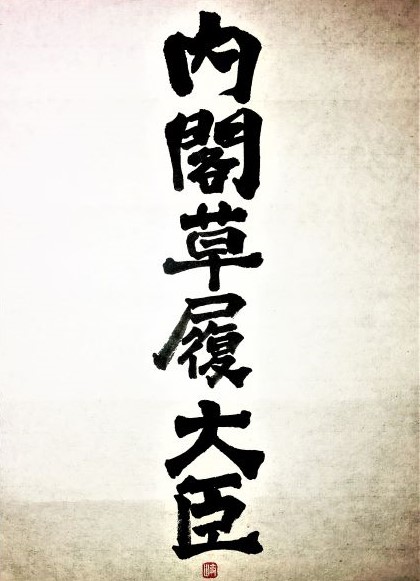 内閣草履大臣